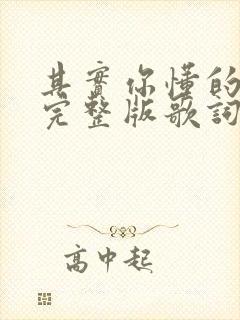 其實你懂的
完整版歌詞
高中起